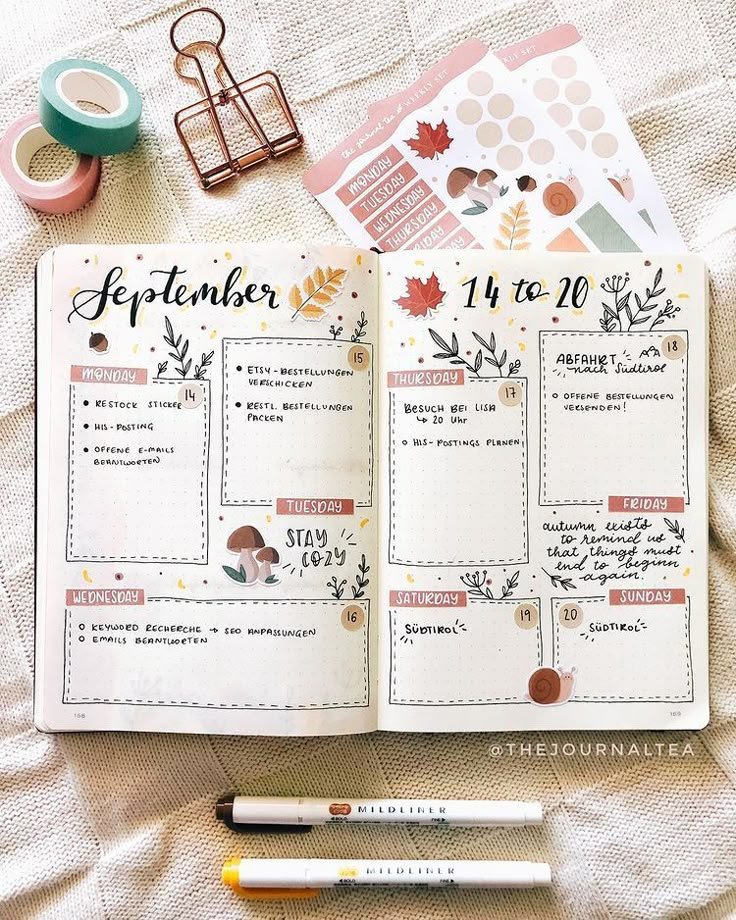 the journal tea ☕ WEEKLY SET
WEEKLY SET
MONDAY
TUESDAY
WEDNESDAY
THURSDAY
FRIDAY
September
MONDAY
14
• RESTOCK STICKER
• HIS-POSTING
• OFFENE E-MAILS
BEANTWORTEN
15
• ETSY-BESTELLUNGEN
VERSCHICKEN
• RESTL. BESTELLUNGEN
PACKEN
TUESDAY
STAY
COZY
WEDNESDAY
16
○ KEYWORD RECHERCHE → SEO ANPASSUNGEN
○ EMAILS BEANTWORTEN
168
14 to 20
THURSDAY
17
BESUCH BEI LISA
↳ 20 Uhr
○ HIS-POSTINGS PLANEN
18
ABFAHRT
nach Südtirol
○ OFFENE BESTELLUNGEN
VERSENDEN!
FRIDAY
autumn exists
to remind us
that things must
end to beginn
again.
SATURDAY
19
SÜDTIROL
SUNDAY
20
SÜDTIROL
169
@THEJOURNALTEA
MILDLINER
BOLD
FINE
MILDLINER
BOLD
FINE